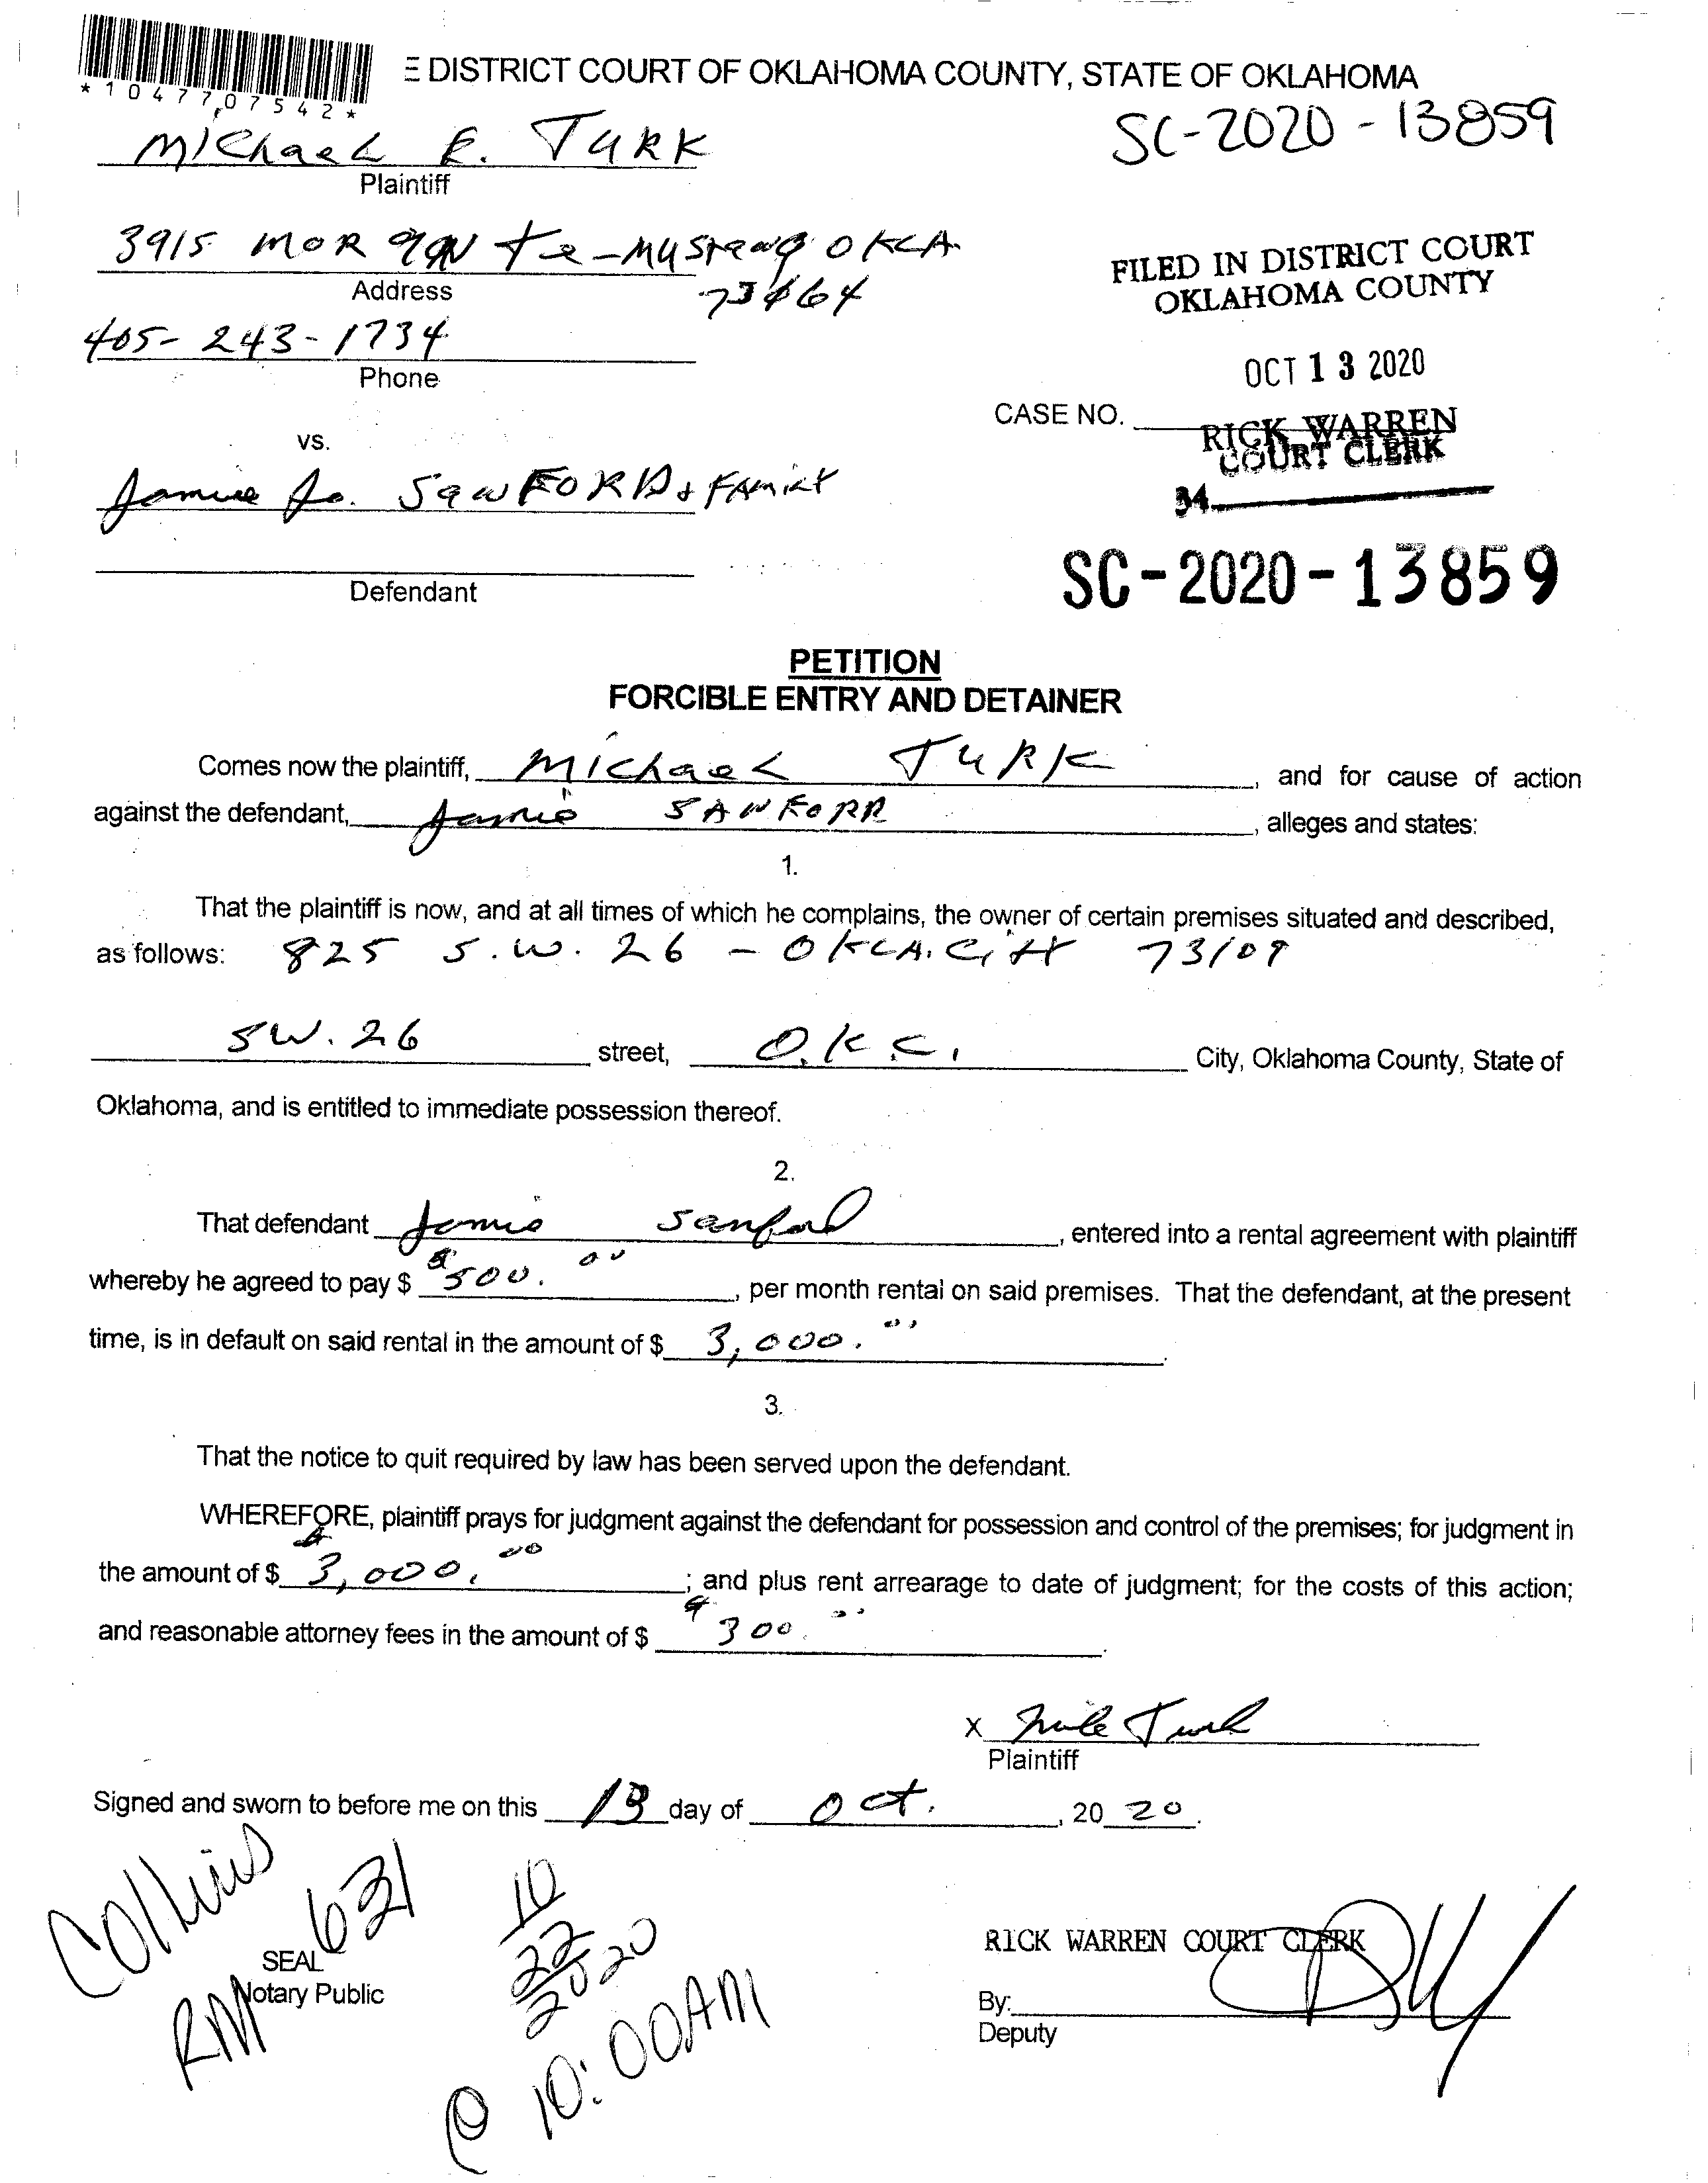 *1047707542*
E DISTRICT COURT OF OKLAHOMA COUNTY, STATE OF OKLAHOMA
SC-2020-13859
Michael E. Turk
Plaintiff
3915 Morgan - Mustang Okla.
73064
Address
405-243-1734
Phone
FILED IN DISTRICT COURT
OKLAHOMA COUNTY
OCT 13 2020
CASE NO.
RICK WARREN
COURT CLERK
34
vs.
Jamie Jo. Sanford & Family
Defendant
SC-2020-13859
PETITION
FORCIBLE ENTRY AND DETAINER
Comes now the plaintiff, Michael Turk, and for cause of action
against the defendant, Jamie Sanford, alleges and states:
1.
That the plaintiff is now, and at all times of which he complains, the owner of certain premises situated and described,
as follows: 825 S.W. 26 - Okla. City 73109
SW. 26 street, O.K.C. City, Oklahoma County, State of
Oklahoma, and is entitled to immediate possession thereof.
2.
That defendant Jamie Sanford, entered into a rental agreement with plaintiff
whereby he agreed to pay $ $500.00, per month rental on said premises. That the defendant, at the present
time, is in default on said rental in the amount of $ 3,000.00
3.
That the notice to quit required by law has been served upon the defendant.
WHEREFORE, plaintiff prays for judgment against the defendant for possession and control of the premises; for judgment in
the amount of $ $3,000.00; and plus rent arrearage to date of judgment; for the costs of this action;
and reasonable attorney fees in the amount of $ $300.00.
X Mike Turk
Plaintiff
Signed and sworn to before me on this 13 day of Oct., 20 20.
Collins
RM 631
SEAL
Notary Public
10/22/2020
@ 10:00AM
RICK WARREN COURT CLERK
By:
Deputy